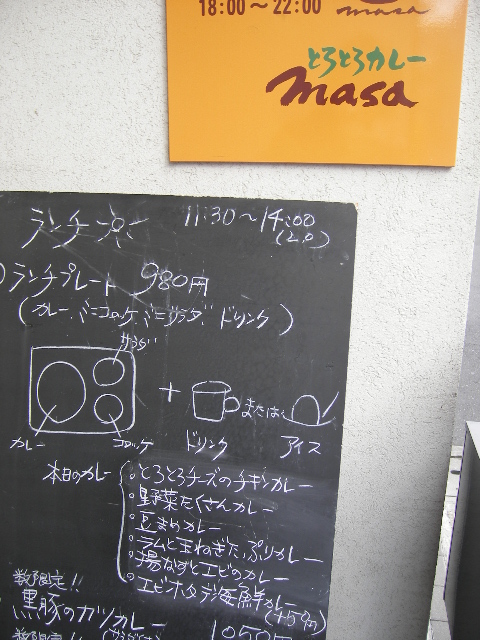 18:00〜22:00
masa
とろとろカレー
masa
ランチ
11:30〜14:00
(L.O)
ランチプレート 980円
(カレー、ミニコロッケ、ミニサラダ、ドリンク)
サラダ
+
または
カレー
コロッケ
ドリンク
アイス
本日のカレー
・とろとろチーズのチキンカレー
・野菜たくさんカレー
・豆まめカレー
・ラムと玉ねぎたっぷりカレー
・揚なすとエビのカレー
・エビホタテ海鮮カレー
数限定!!
黒豚のカツカレー
数限定!!
1050円